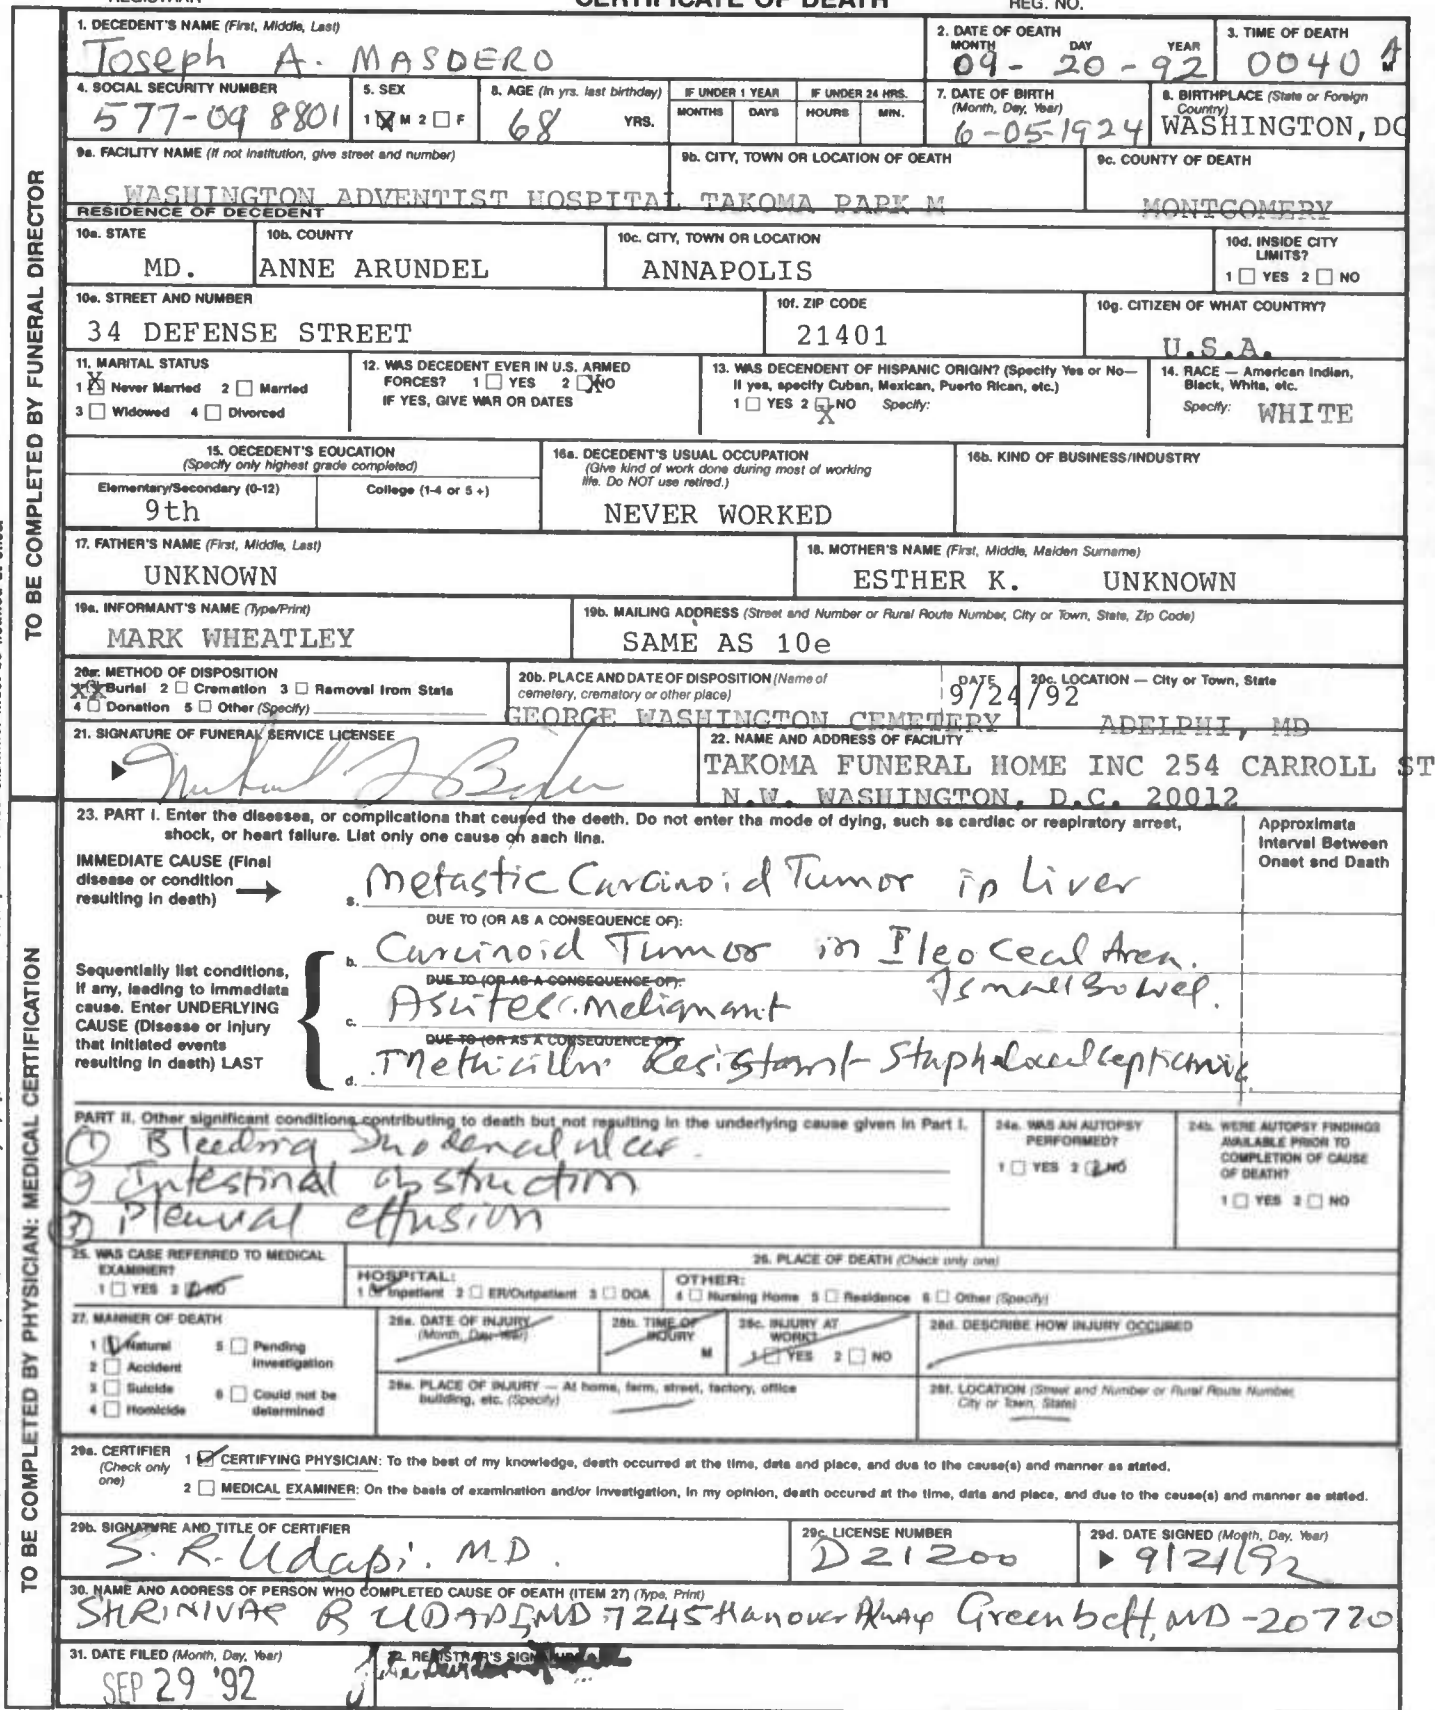 REGISTRAR CERTIFICATE OF DEATH REG. NO.
TO BE COMPLETED BY FUNERAL DIRECTOR
1. DECEDENT'S NAME (First, Middle, Last)
Joseph A. MASDERO
2. DATE OF DEATH
MONTH DAY YEAR
09- 20-92
3. TIME OF DEATH
0040 A M
4. SOCIAL SECURITY NUMBER
577-09 8801
5. SEX
1 X M 2 ☐ F
6. AGE (In yrs. last birthday)
68 YRS.
IF UNDER 1 YEAR
MONTHS DAYS
IF UNDER 24 HRS.
HOURS MIN.
7. DATE OF BIRTH
(Month, Day, Year)
6-05-1924
8. BIRTHPLACE (State or Foreign
Country)
WASHINGTON, DC
9a. FACILITY NAME (If not institution, give street and number)
WASHINGTON ADVENTIST HOSPITAL
9b. CITY, TOWN OR LOCATION OF DEATH
TAKOMA PARK M
9c. COUNTY OF DEATH
MONTGOMERY
RESIDENCE OF DECEDENT
10a. STATE
MD.
10b. COUNTY
ANNE ARUNDEL
10c. CITY, TOWN OR LOCATION
ANNAPOLIS
10d. INSIDE CITY
LIMITS?
1 ☐ YES 2 ☐ NO
10e. STREET AND NUMBER
34 DEFENSE STREET
10f. ZIP CODE
21401
10g. CITIZEN OF WHAT COUNTRY?
U.S.A.
11. MARITAL STATUS
1 X Never Married 2 ☐ Married
3 ☐ Widowed 4 ☐ Divorced
12. WAS DECEDENT EVER IN U.S. ARMED
FORCES? 1 ☐ YES 2 X NO
IF YES, GIVE WAR OR DATES
13. WAS DECENDENT OF HISPANIC ORIGIN? (Specify Yes or No—
If yes, specify Cuban, Mexican, Puerto Rican, etc.)
1 ☐ YES 2 X NO Specify:
14. RACE — American Indian,
Black, White, etc.
Specify: WHITE
15. DECEDENT'S EDUCATION
(Specify only highest grade completed)
Elementary/Secondary (0-12) College (1-4 or 5 +)
9th
16a. DECEDENT'S USUAL OCCUPATION
(Give kind of work done during most of working
life. Do NOT use retired.)
NEVER WORKED
16b. KIND OF BUSINESS/INDUSTRY
17. FATHER'S NAME (First, Middle, Last)
UNKNOWN
18. MOTHER'S NAME (First, Middle, Maiden Surname)
ESTHER K. UNKNOWN
19a. INFORMANT'S NAME (Type/Print)
MARK WHEATLEY
19b. MAILING ADDRESS (Street and Number or Rural Route Number, City or Town, State, Zip Code)
SAME AS 10e
20a. METHOD OF DISPOSITION
1 X Burial 2 ☐ Cremation 3 ☐ Removal from State
4 ☐ Donation 5 ☐ Other (Specify)
20b. PLACE AND DATE OF DISPOSITION (Name of
cemetery, crematory or other place)
GEORGE WASHINGTON CEMETERY
DATE
9/24/92
20c. LOCATION — City or Town, State
ADELPHI, MD
21. SIGNATURE OF FUNERAL SERVICE LICENSEE
22. NAME AND ADDRESS OF FACILITY
TAKOMA FUNERAL HOME INC 254 CARROLL ST
N.W. WASHINGTON, D.C. 20012
TO BE COMPLETED BY PHYSICIAN: MEDICAL CERTIFICATION
23. PART I. Enter the diseases, or complications that caused the death. Do not enter the mode of dying, such as cardiac or respiratory arrest,
shock, or heart failure. List only one cause on each line.
Approximate
Interval Between
Onset and Death
IMMEDIATE CAUSE (Final
disease or condition
resulting in death)
a. Metastic Carcinoid Tumor in Liver
DUE TO (OR AS A CONSEQUENCE OF):
Sequentially list conditions,
if any, leading to immediate
cause. Enter UNDERLYING
CAUSE (Disease or injury
that initiated events
resulting in death) LAST
b. Carcinoid Tumor in Ileocecal Area.
DUE TO (OR AS A CONSEQUENCE OF):
Small Bowel.
c. Ascites: Malignant
DUE TO (OR AS A CONSEQUENCE OF):
d. Methicillin Resistant
PART II. Other significant conditions contributing to death but not resulting in the underlying cause given in Part I.
① Bleeding Duodenal ulcer.
② Intestinal obstruction
③ Pleural effusion
24a. WAS AN AUTOPSY
PERFORMED?
1 ☐ YES 2 ☑ NO
24b. WERE AUTOPSY FINDINGS
AVAILABLE PRIOR TO
COMPLETION OF CAUSE
OF DEATH?
1 ☐ YES 2 ☐ NO
25. WAS CASE REFERRED TO MEDICAL
EXAMINER?
1 ☐ YES 2 ☑ NO
26. PLACE OF DEATH (Check only one)
HOSPITAL:
1 ☑ Inpatient 2 ☐ ER/Outpatient 3 ☐ DOA
OTHER:
4 ☐ Nursing Home 5 ☐ Residence 6 ☐ Other (Specify)
27. MANNER OF DEATH
1 ☑ Natural 5 ☐ Pending
Investigation
2 ☐ Accident
3 ☐ Suicide 6 ☐ Could not be
determined
4 ☐ Homicide
28a. DATE OF INJURY
(Month, Day, Year)
28b. TIME OF
INJURY
M
28c. INJURY AT
WORK?
1 ☐ YES 2 ☐ NO
28d. DESCRIBE HOW INJURY OCCURED
28e. PLACE OF INJURY — At home, farm, street, factory, office
building, etc. (Specify)
28f. LOCATION (Street and Number or Rural Route Number,
City or Town, State)
29a. CERTIFIER
(Check only
one)
1 ☑ CERTIFYING PHYSICIAN: To the best of my knowledge, death occurred at the time, date and place, and due to the cause(s) and manner as stated.
2 ☐ MEDICAL EXAMINER: On the basis of examination and/or investigation, in my opinion, death occured at the time, data and place, and due to the cause(s) and manner as stated.
29b. SIGNATURE AND TITLE OF CERTIFIER
S. R. Udapi. M.D.
29c. LICENSE NUMBER
D21200
29d. DATE SIGNED (Month, Day, Year)
9/21/92
30. NAME AND ADDRESS OF PERSON WHO COMPLETED CAUSE OF DEATH (ITEM 27) (Type, Print)
SHRINIVAS R UDAPI, MD 7245 Hanover Pkway Greenbelt, MD-20770
31. DATE FILED (Month, Day, Year)
SEP 29 '92
32. REGISTRAR'S SIGNATURE